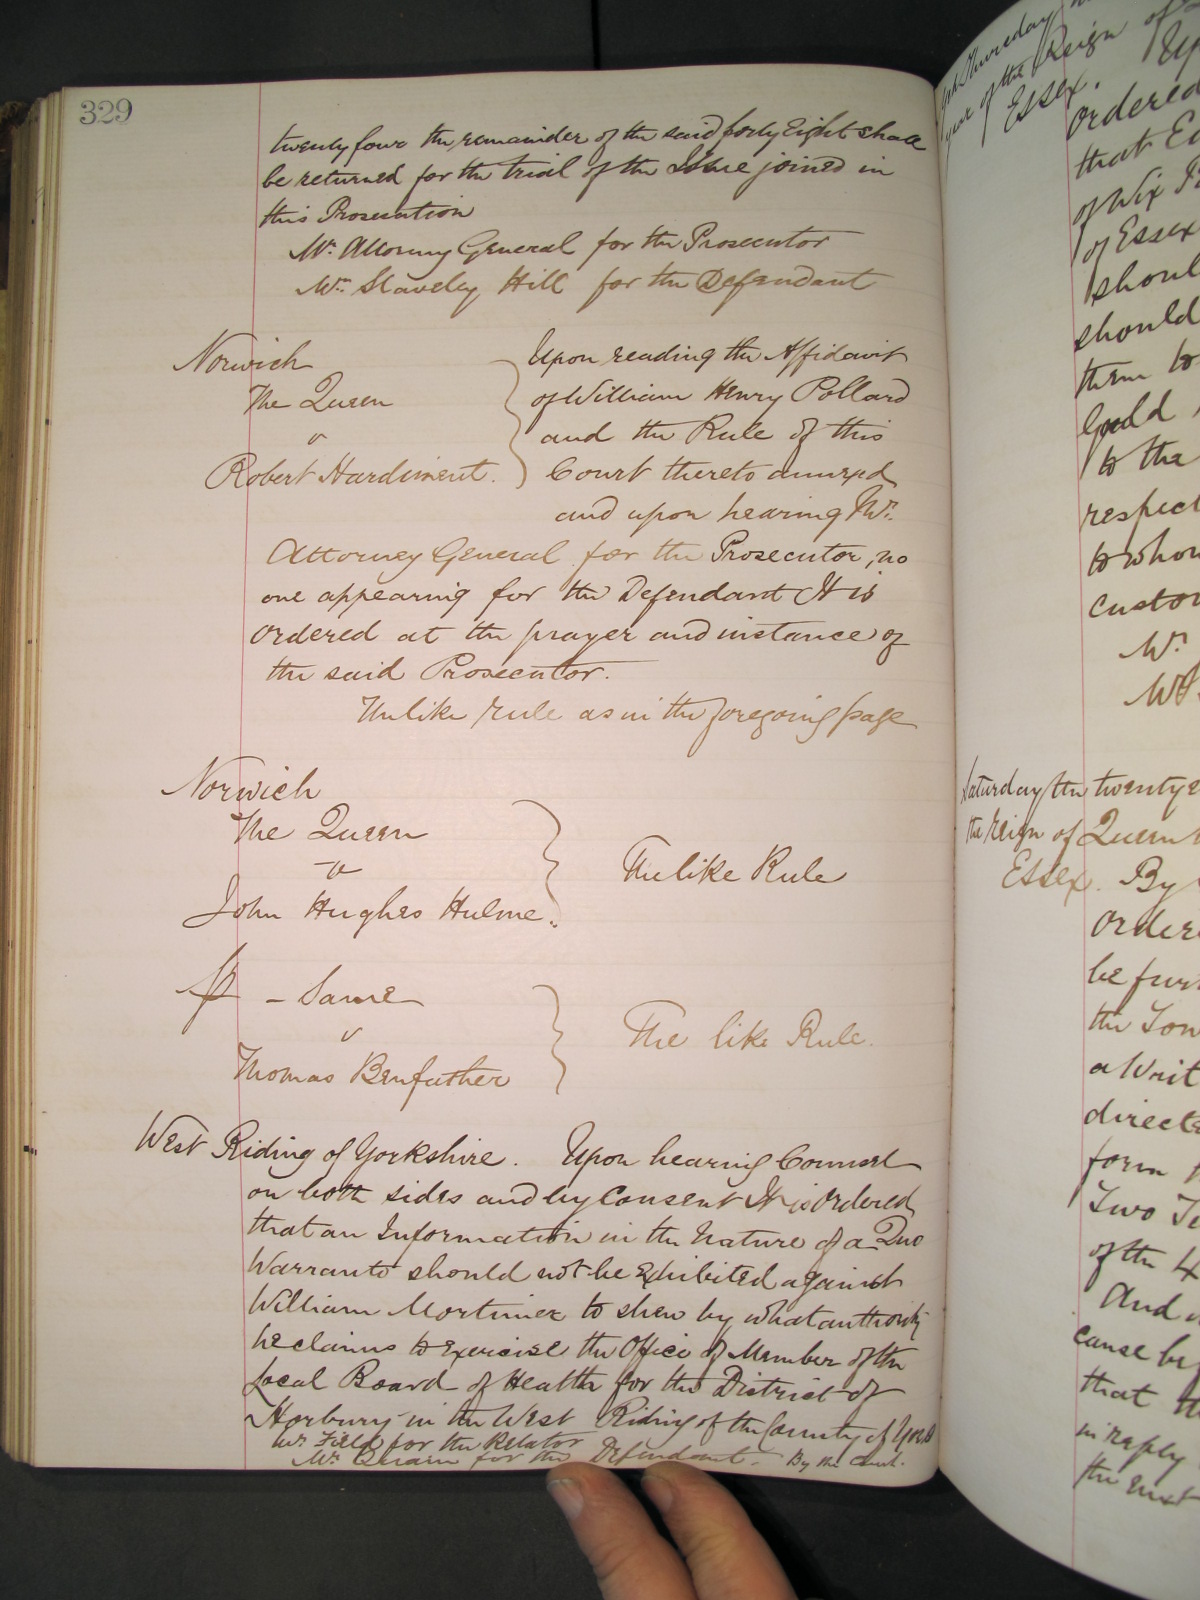 329
twenty four the remainder of the said forty Eight shall
be returned for the trial of the Issue joined in
this Prosecution
Mr. Attorney General for the Prosecutor
Mr. Staveley Hill for the Defendant
Norwich
The Queen
v
Robert Hardiment.
Upon reading the Affidavit
of William Henry Pollard
and the Rule of this
Court thereto annexed
and upon hearing Mr.
Attorney General for the Prosecutor, no
one appearing for the Defendant It is
ordered at the prayer and instance of
the said Prosecutor.
The like rule as in the foregoing page
Norwich
The Queen
v
John Hughes Hulme.
The like Rule
Same
v
Thomas Benfather
The like Rule.
West Riding of Yorkshire. Upon hearing Counsel
on both sides and by Consent It is Ordered
that an Information in the Nature of a Quo
Warranto should not be Exhibited against
William Mortimer to shew by what authority
he claims to Exercise the Office of Member of the
Local Board of Health for the District of
Horbury in the West Riding of the County of York
Mr. Field for the Relator
Mr. Quain for the Defendant. By the Court.
Thursday
year of the Reign of
Essex.
ordered
that
of Wix
of Essex
should
should
them to
Gould
to the
respect
to whom
custom
Mr.
Saturday the twenty
the Reign of Queen
Essex. By
Ordere
be furt
the
a Writ
directe
form
Two
of the 4
And
cause be
that
in reply
the next